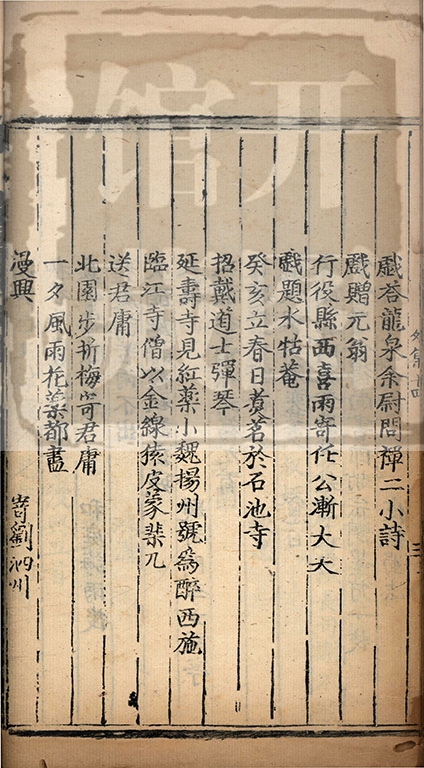 戲答龍泉余尉問禪二小詩
戲贈元翁
行役縣西喜雨寄任公漸大夫
戲題水牯菴
癸亥立春日煑茗於石池寺
招戴道士彈琴
延壽寺見紅藥小魏揚州號為醉西施
臨江寺僧以金線猿皮蒙棐几
送君庸
北園步折梅寄君庸
一夕風雨花藥都盡
漫興
寄劉泗州